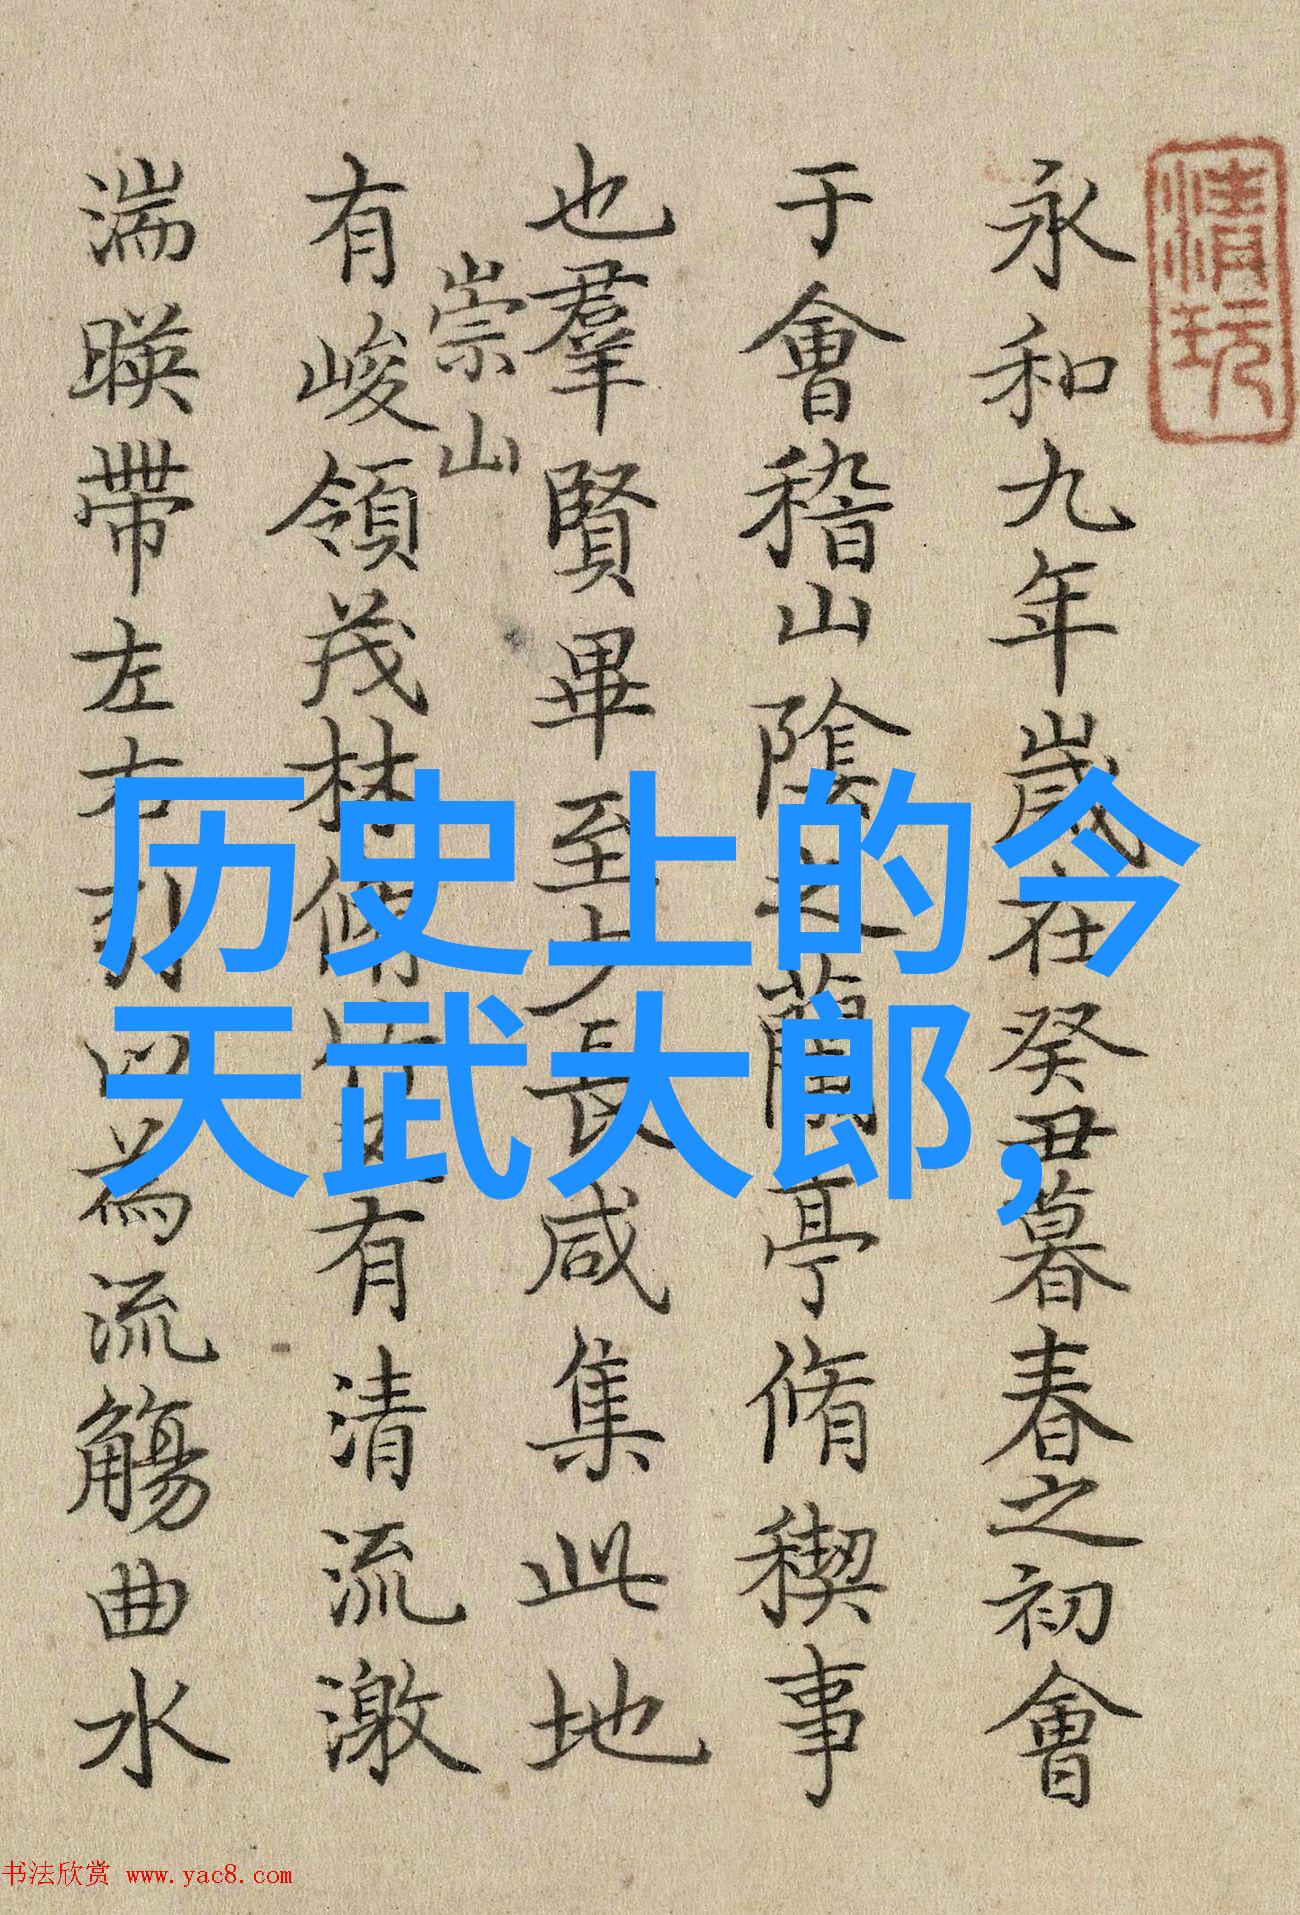 清玩
永和九年歲在癸丑暮春之初會
于會稽山陰之蘭亭脩稧事
也羣賢畢至少長咸集此地
崇山
有峻領茂林脩竹又有清流激
湍暎帶左右引以為流觴曲水
历史上的今
天武大郎，
书法欣赏 www.yac8.com